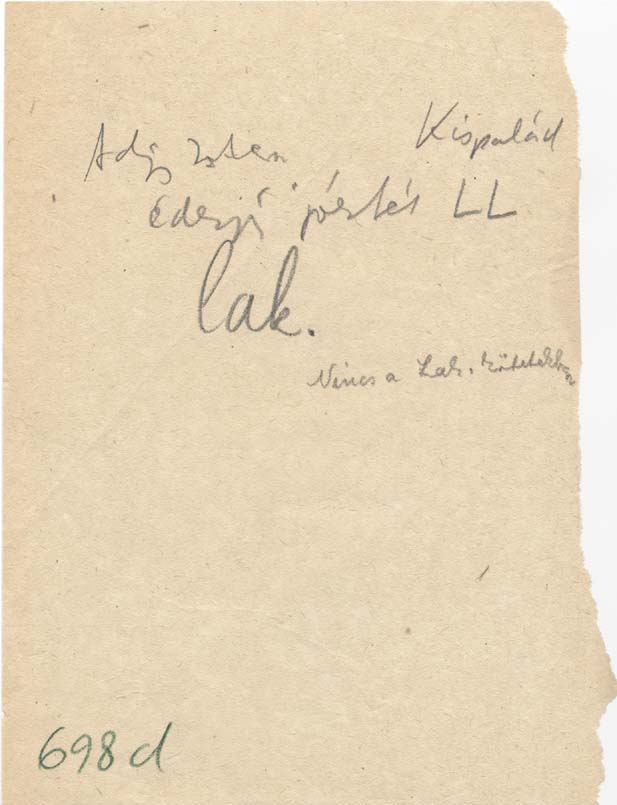 Adj Isten Kispalád
édesjó pártát LL
lak.
Nincs a Lak. kötetekben
698 d